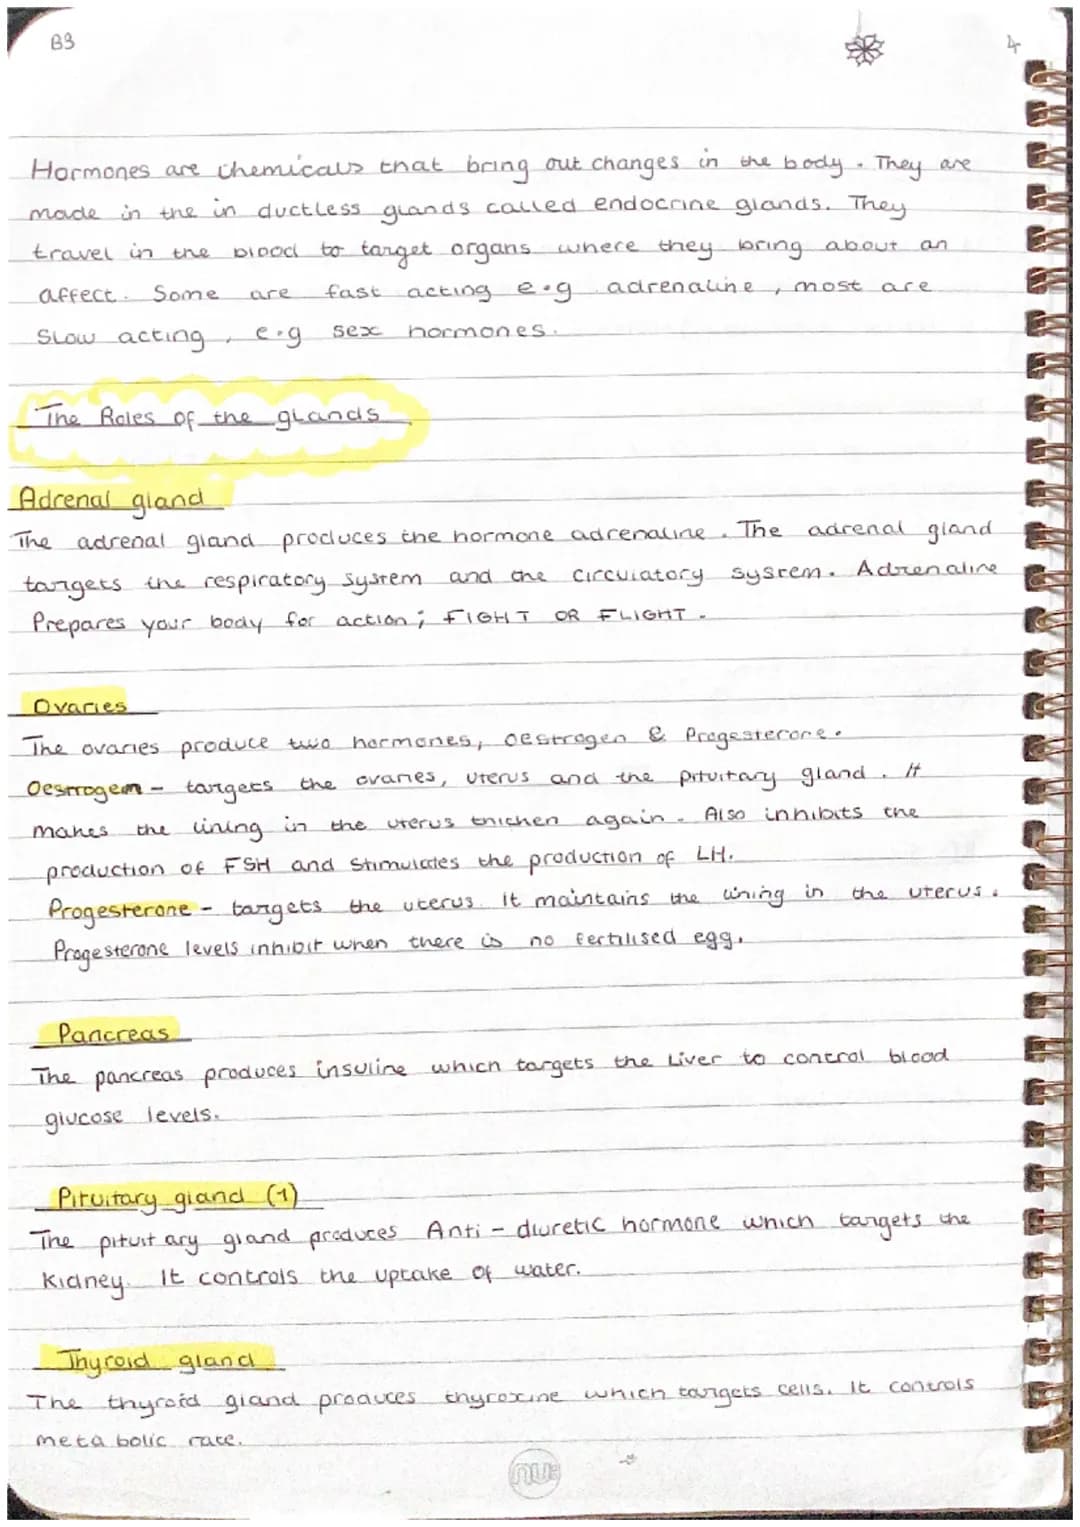 B3
4
Hormones are chemicals that bring out changes in the body. They are
made in the in ductless glands called endocrine glands. They
travel in the blood to target organs where they bring about an
affect. Some are fast acting e.g adrenaline, most are
slow acting, e.g sex hormones.
The Roles of the glands
Adrenal gland
The adrenal gland produces the hormone adrenaline. The adrenal gland
targets the respiratory system and the circulatory system. Adrenaline
Prepares your body for action; FIGHT OR FLIGHT.
Ovaries
The ovaries produce two hormones, oestrogen & Progesterone.
Oestrogem - targets the ovaries, uterus and the pituitary gland. It
makes the lining in the uterus thichen again. Also inhibits the
production of FSH and stimulates the production of LH.
Progesterone - targets the uterus. It maintains the lining in the uterus.
Progesterone levels inhibit when there is no fertilised egg.
Pancreas
The pancreas produces insuline which targets the Liver to control blood
glucose levels.
Pituitary gland (1)
The pituitary gland produces Anti-diuretic hormone which targets the
Kidney. It controls the uptake of water.
Thyroid gland
The thyroid gland produces thyroxine which targets cells. It controls
metabolic rate.
nu: